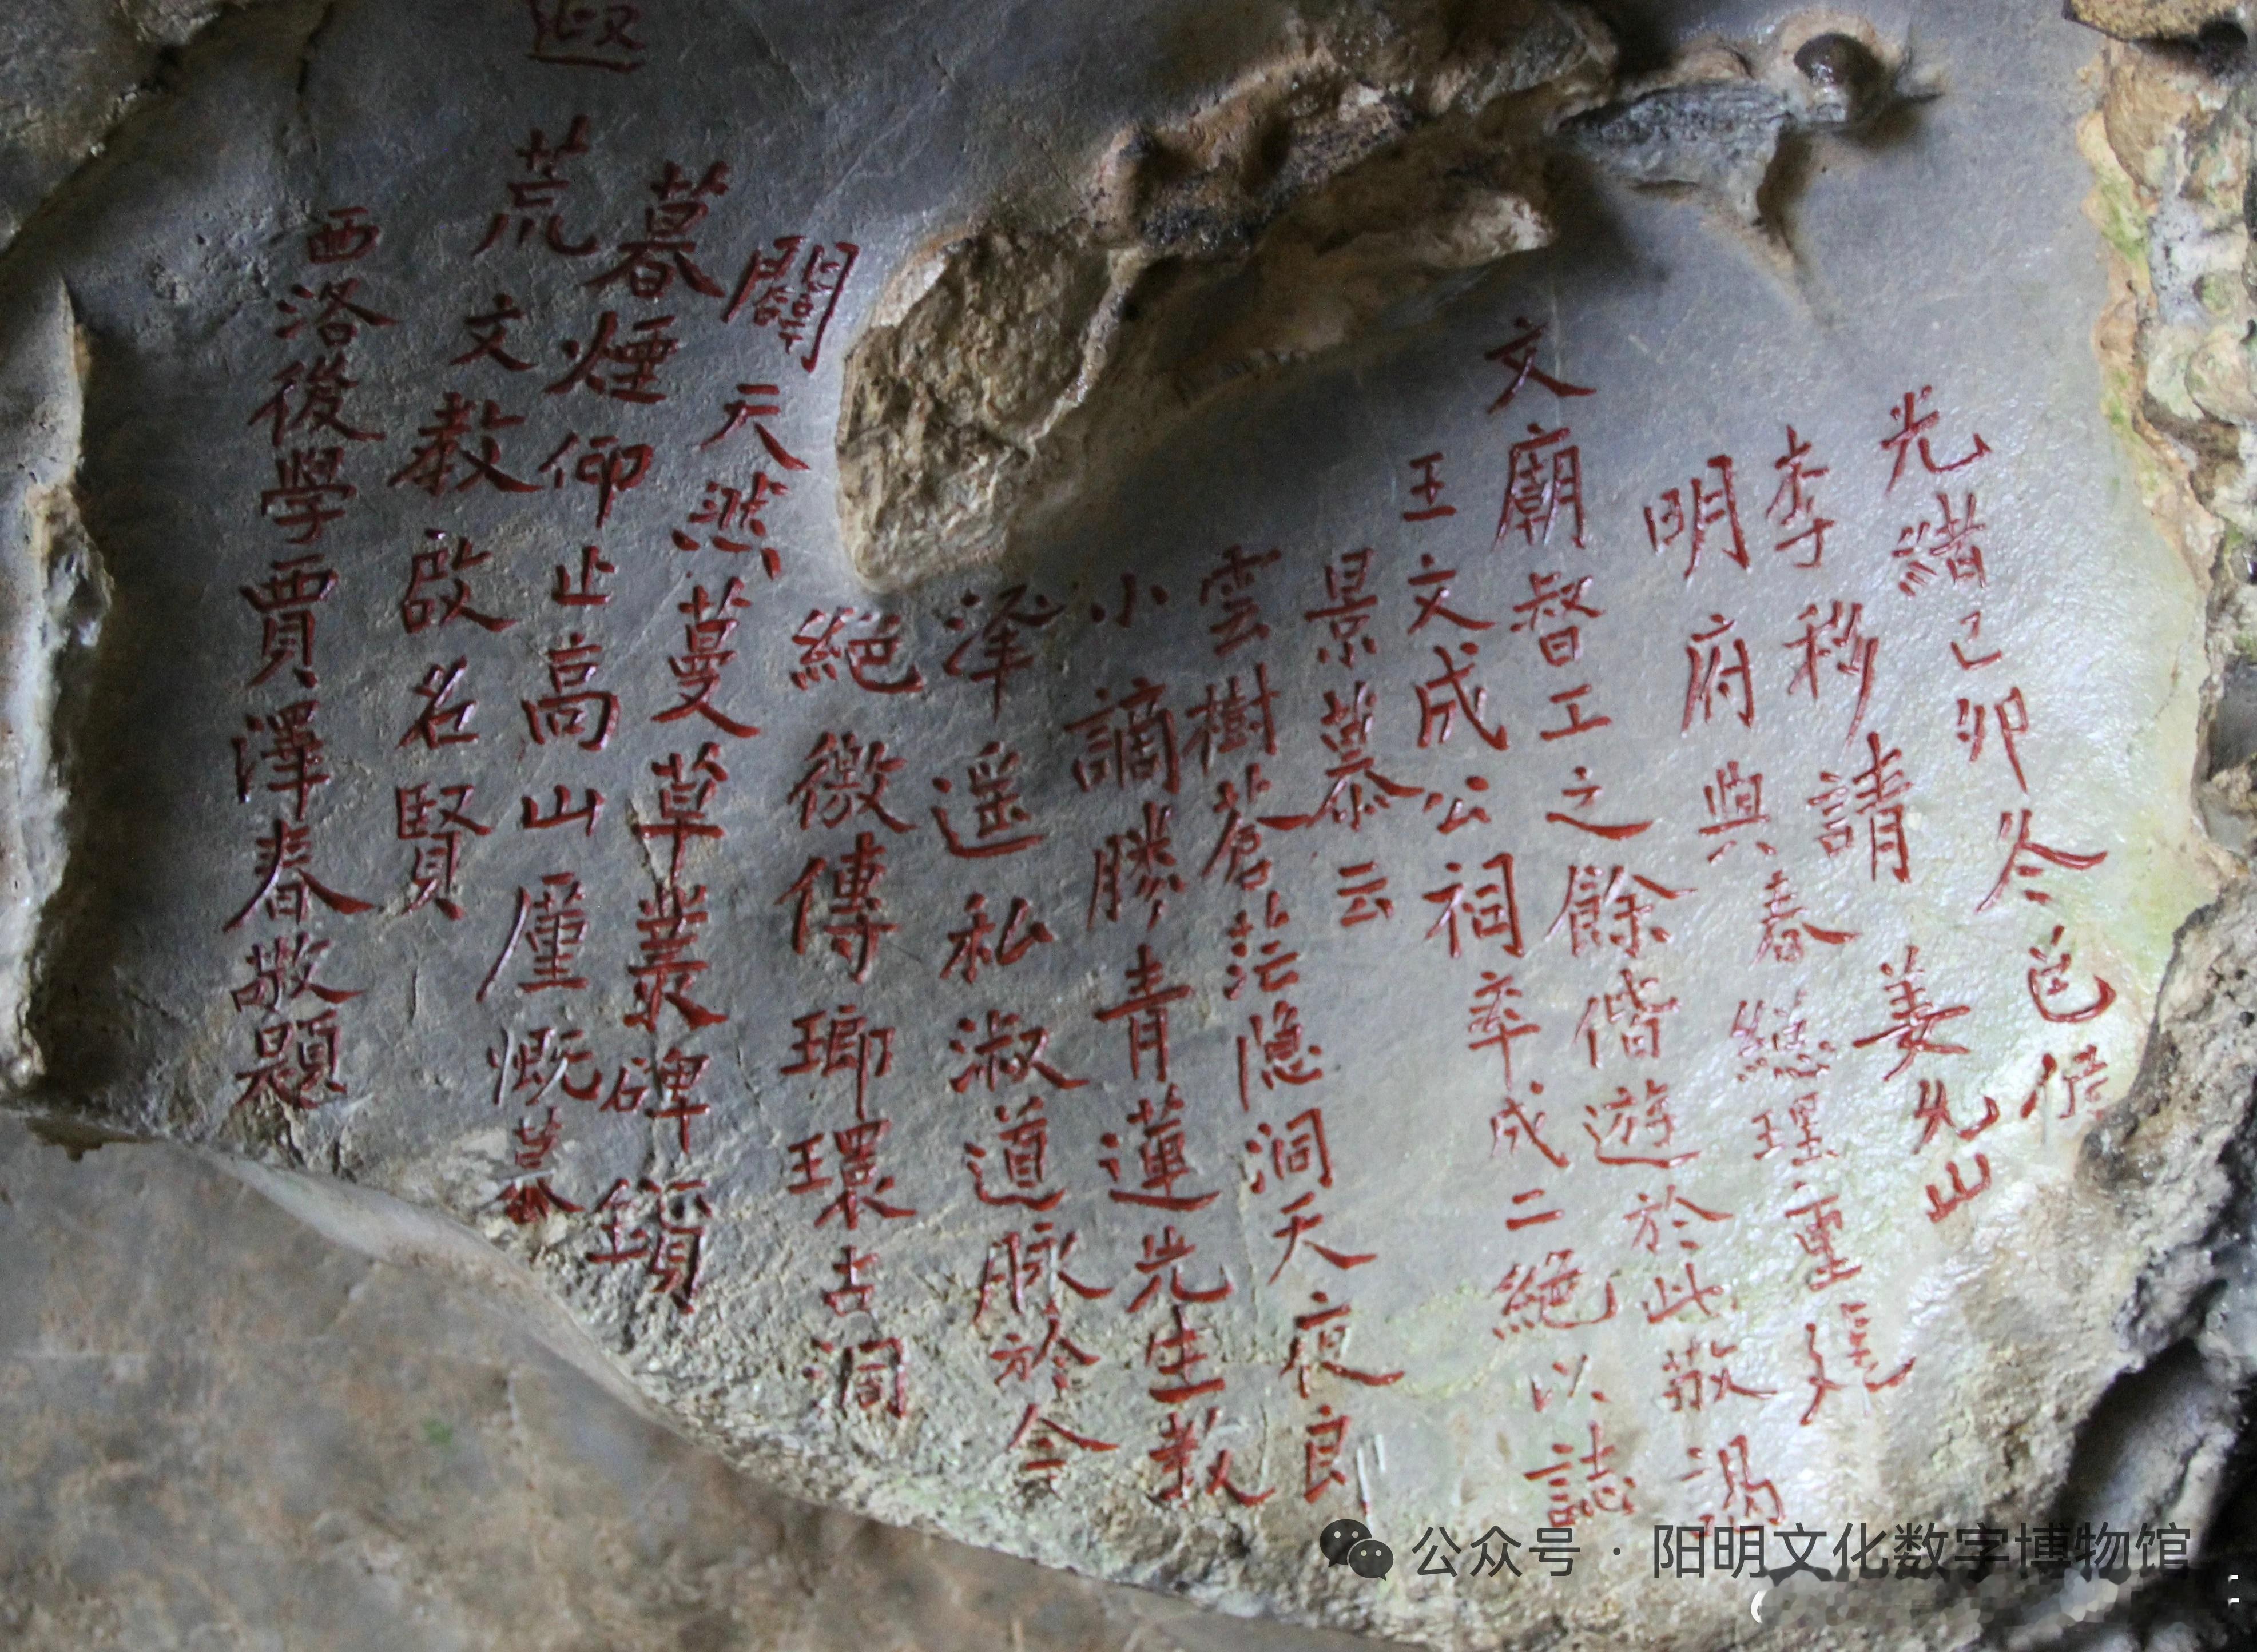 光緒己卯冬邑侯
李移請姜先山
明府與春總理重建
文廟督工之餘偕遊於此敬謁
王文成公祠率成二絕以誌
景慕云
雲樹蒼茫隱洞天夜良
小謫勝青蓮先生教
澤遥私淑道脉於今
絕徼傳瑯環古洞
闢天然蔓草叢碑鎖
暮煙仰止高山廑慨慕
遐荒文教啟名賢
西洛後學賈澤春敬題
公众号 · 阳明文化数字博物馆